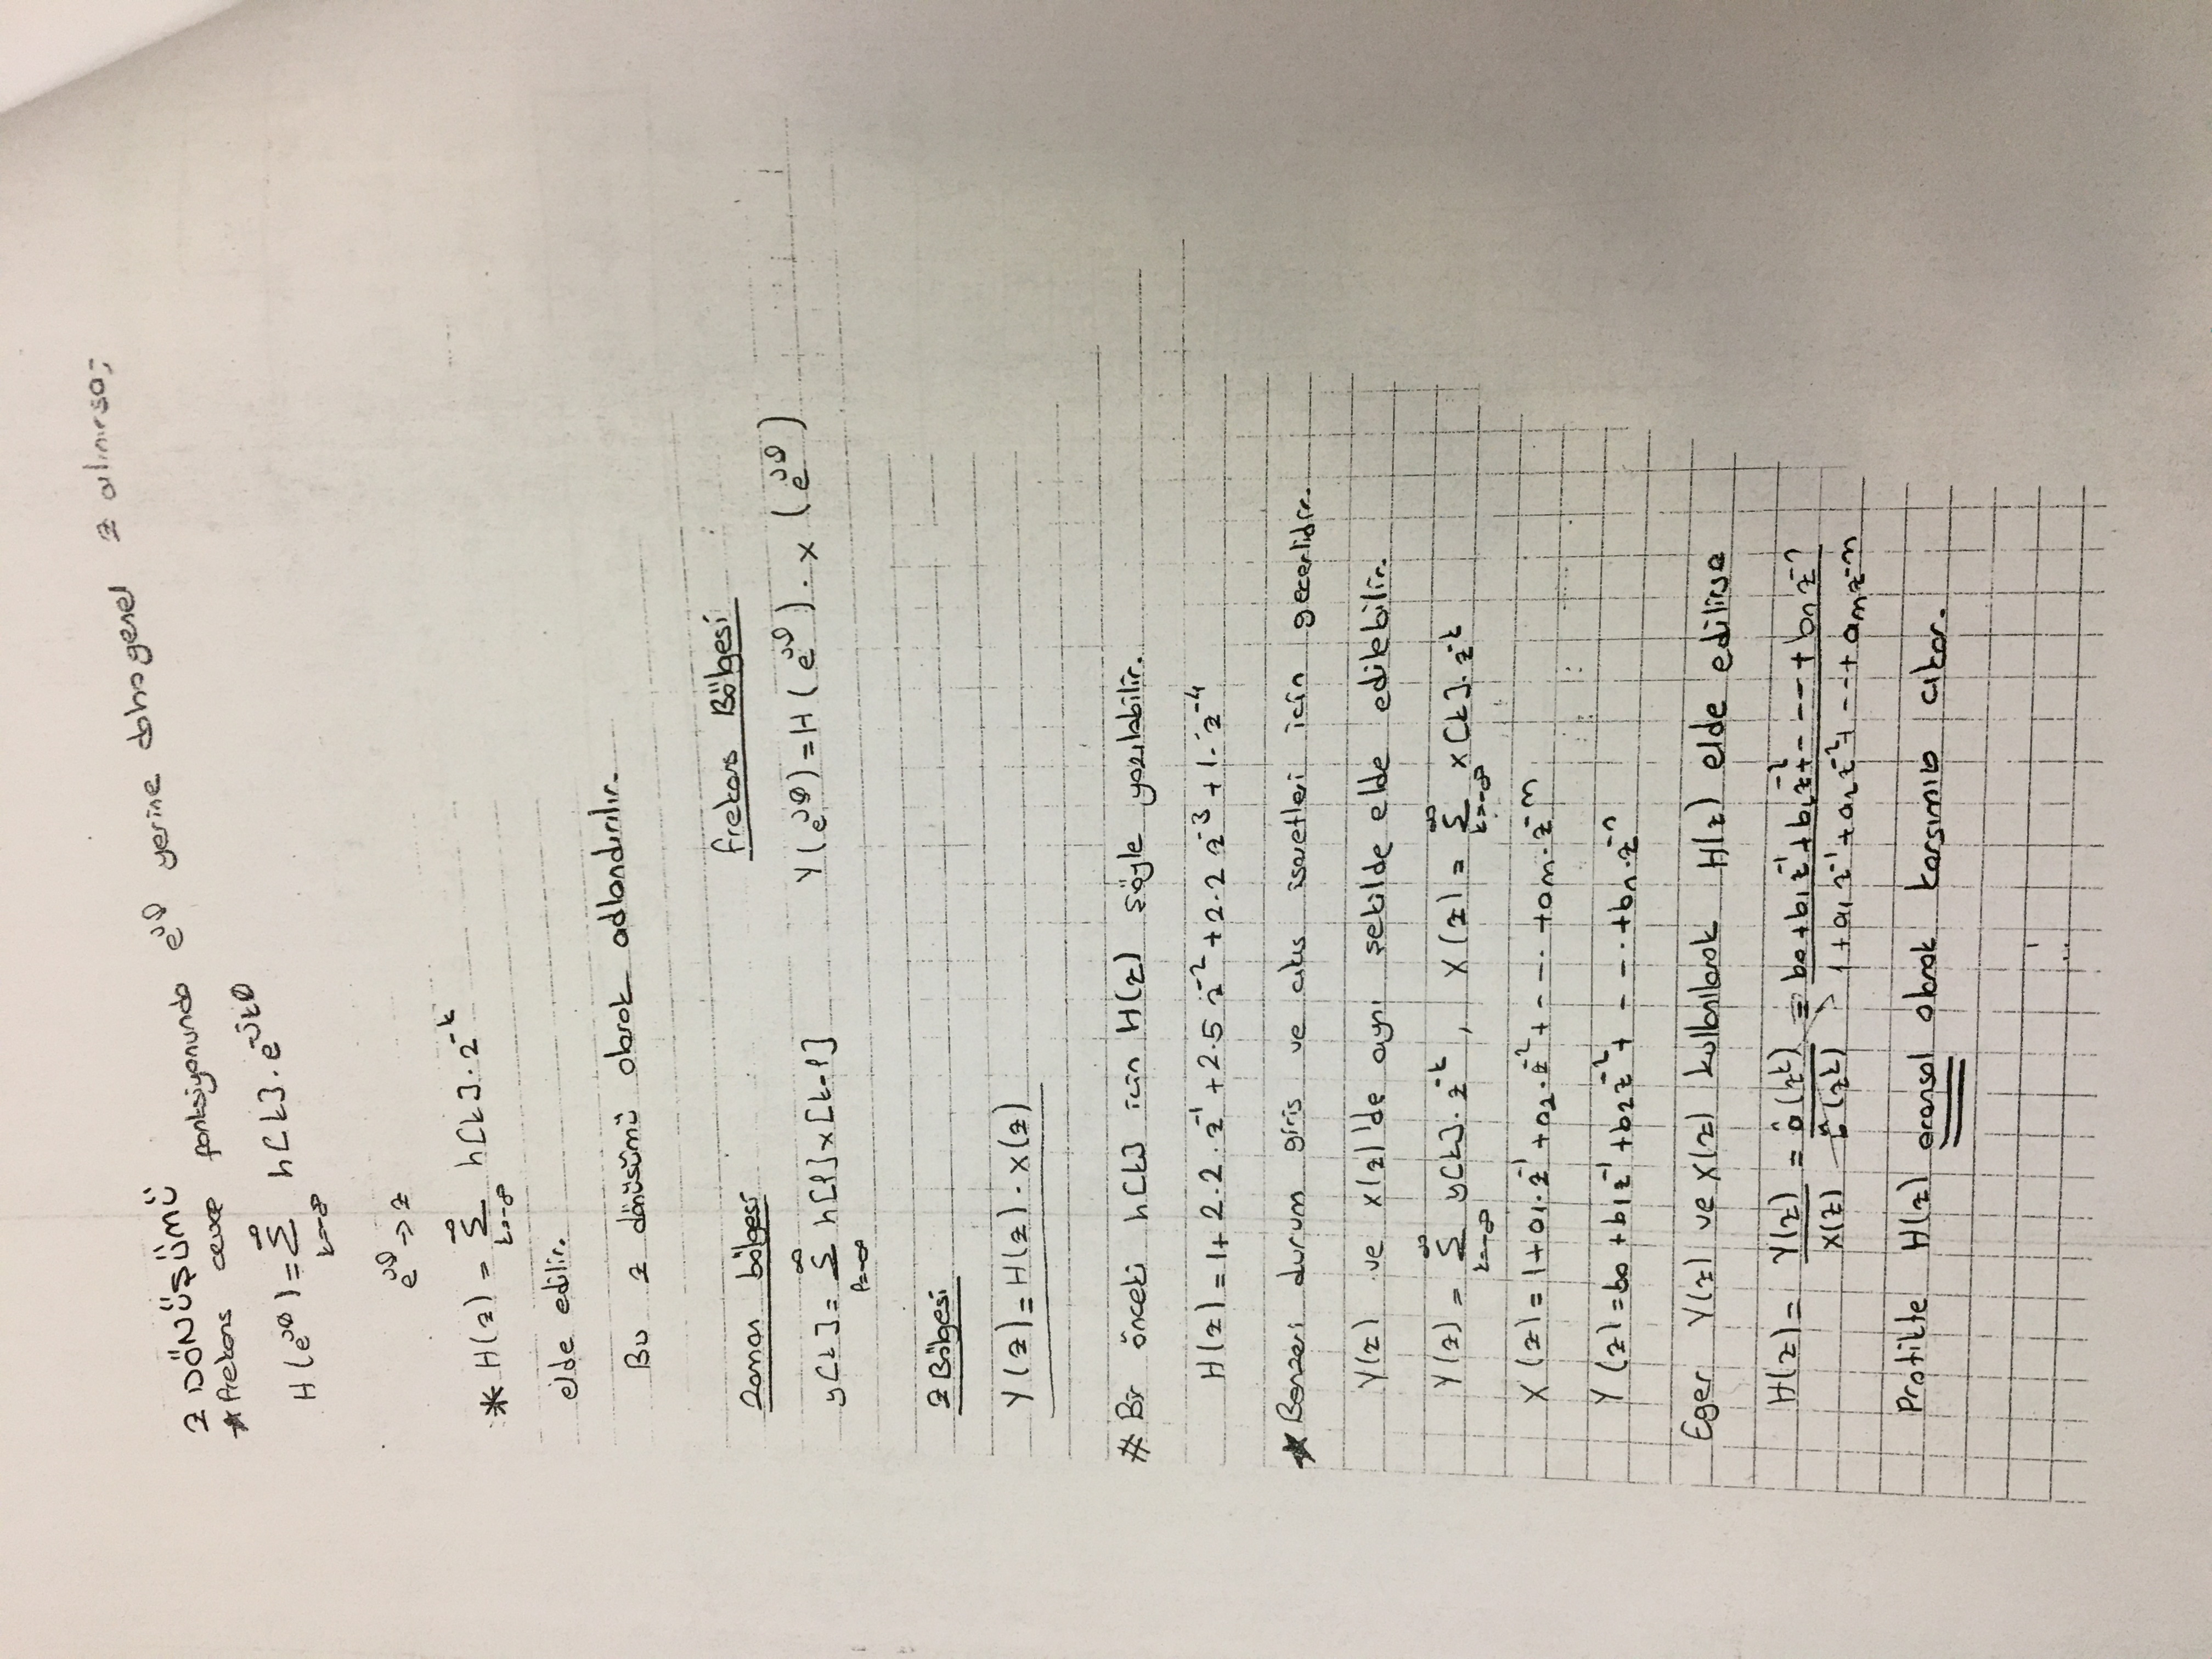 Z DÖNÜŞÜMÜ
* frekans cevap fonksiyonunda e^{jθ} yerine daha genel z alınırsa;
H(e^{jθ}) = ∑_{k=-∞}^{∞} h[k] . e^{-jkθ}
e^{jθ} → z
* H(z) = ∑_{k=-∞}^{∞} h[k] . z^{-k}
elde edilir.
Bu z dönüsümü olarak adlandırılır.
Zaman bölgesi
frekans Bölgesi
y[k] = ∑_{l=-∞}^{∞} h[l] x[k-l]
Y(e^{jθ}) = H(e^{jθ}) . x(e^{jθ})
Z Bölgesi
Y(z) = H(z) . X(z)
# Bir önceki h[k] için H(z) şöyle yazılabilir.
H(z) = 1 + 2.2 . z^{-1} + 2.5 z^{-2} + 2.2 z^{-3} + 1. z^{-4}
* Benzeri durum giris ve cıkıs isaretleri icin gecerlidir.
Y(z) ve X(z)'de aynı şekilde elde edilebilir.
Y(z) = ∑_{k=-∞}^{∞} y[k] . z^{-k} , X(z) = ∑_{k=-∞}^{∞} x[k] . z^{-k}
X(z) = 1 + a1 . z^{-1} + a2 . z^{-2} + ---- + am . z^{-m}
Y(z) = b0 + b1 z^{-1} + b2 z^{-2} + ---- + bn . z^{-n}
Eger Y(z) ve X(z) kullanılarak H(z) elde edilirse
H(z) = Y(z) / X(z) = (z^k) / (z^k) = b0 + b1 z^{-1} + b2 z^{-2} + ---- + bn z^{-n} / 1 + a1 z^{-1} + a2 z^{-2} + --- + am z^{-m}
Pratikte H(z) oransal olarak karsımıza cıkar.